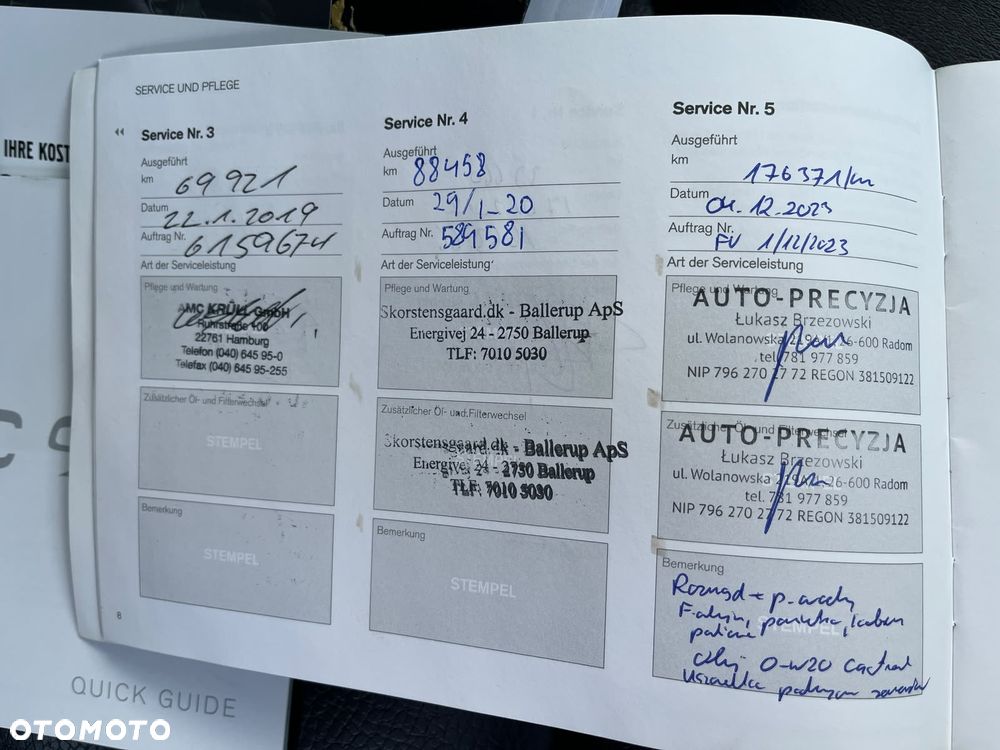 IHRE KOST
SERVICE UND PFLEGE
Service Nr. 3
Ausgeführt
km 69 921
Datum 22.1.2019
Auftrag Nr. 6159674
Art der Serviceleistung
Pflege und Wartung
AMC KRÜLL GmbH
Ruhrstraße 100
22761 Hamburg
Telefon (040) 645 95-0
Telefax (040) 645 95-255
Zusätzlicher Öl- und Filterwechsel
STEMPEL
Bemerkung
STEMPEL
6
Service Nr. 4
Ausgeführt
km 88458
Datum 29/1-20
Auftrag Nr. 589581
Art der Serviceleistung
Pflege und Wartung
Skorstensgaard.dk - Ballerup ApS
Energivej 24 - 2750 Ballerup
TLF: 7010 5030
Zusätzlicher Öl- und Filterwechsel
Skorstensgaard.dk - Ballerup ApS
Energivej 24 - 2750 Ballerup
TLF: 7010 5030
Bemerkung
STEMPEL
Service Nr. 5
Ausgeführt
km 176371/km
Datum 04.12.2023
Auftrag Nr. FV 1/12/2023
Art der Serviceleistung
Pflege und Wartung
AUTO-PRECYZJA
Łukasz Brzezowski
ul. Wolanowska 219A, 26-600 Radom
tel. 781 977 859
NIP 796 270 27 72 REGON 381509122
Zusätzlicher Öl- und Filterwechsel
AUTO-PRECYZJA
Łukasz Brzezowski
ul. Wolanowska 219A, 26-600 Radom
tel. 781 977 859
NIP 796 270 27 72 REGON 381509122
Bemerkung
Rozrząd + p.
STEMPEL
olej 0-w20 Castrol
Uszczelka
QUICK GUIDE
OTOMOTO